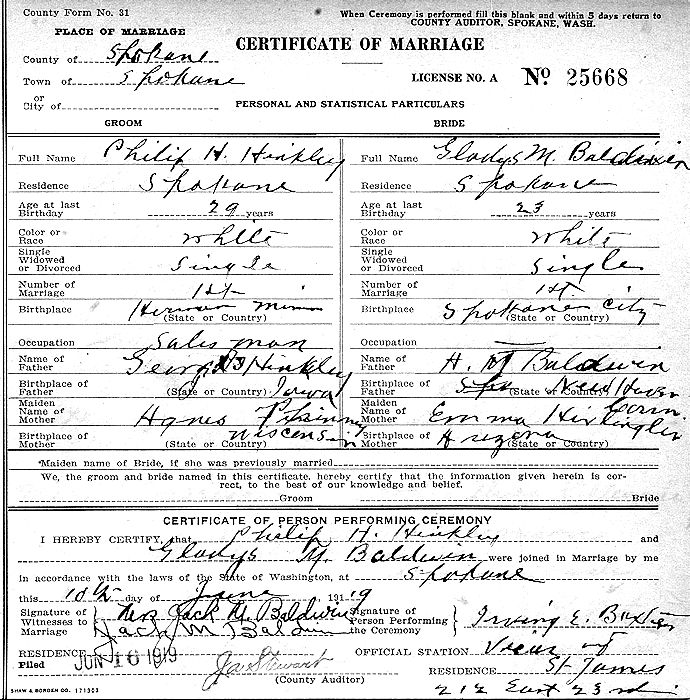 County Form No. 31
When Ceremony is performed fill this blank and within 5 days return to
COUNTY AUDITOR, SPOKANE, WASH.
PLACE OF MARRIAGE
CERTIFICATE OF MARRIAGE
County of Spokane
Town of Spokane
LICENSE NO. A Nº 25668
or
City of
PERSONAL AND STATISTICAL PARTICULARS
GROOM BRIDE
Full Name Philip H. Hinkley Full Name Gladys M. Baldwin
Residence Spokane Residence Spokane
Age at last Birthday 29 years Age at last Birthday 23 years
Color or Race White Color or Race White
Single Widowed or Divorced Single Single Widowed or Divorced Single
Number of Marriage 1st Number of Marriage 1st
Birthplace Herman Minn (State or Country) Birthplace Spokane City (State or Country)
Occupation Sales man Occupation
Name of Father Hinkley Name of Father H. M Baldwin
Birthplace of Father Iowa (State or Country) Birthplace of Father New Haven Conn. (State or Country)
Maiden Name of Mother Agnes Maiden Name of Mother Emma
Birthplace of Mother Wisconsin (State or Country) Birthplace of Mother Arizona (State or Country)
*Maiden name of Bride, if she was previously married
We, the groom and bride named in this certificate, hereby certify that the information given herein is cor-
rect, to the best of our knowledge and belief.
Groom Bride
CERTIFICATE OF PERSON PERFORMING CEREMONY
I HEREBY CERTIFY, that Philip H. Hinkley and
Gladys M. Baldwin were joined in Marriage by me
in accordance with the laws of the State of Washington, at Spokane
this 10th day of June 1919
Signature of Witnesses to Marriage Mrs Jack M. Baldwin Signature of Person Performing the Ceremony Irving E. Baxter
Jack M Baldwin
RESIDENCE OFFICIAL STATION Vicar of
Filed JUN 16 1919 Jas Stewart RESIDENCE St James
(County Auditor) 212 East 23rd
SHAW & BORDEN CO. 171503